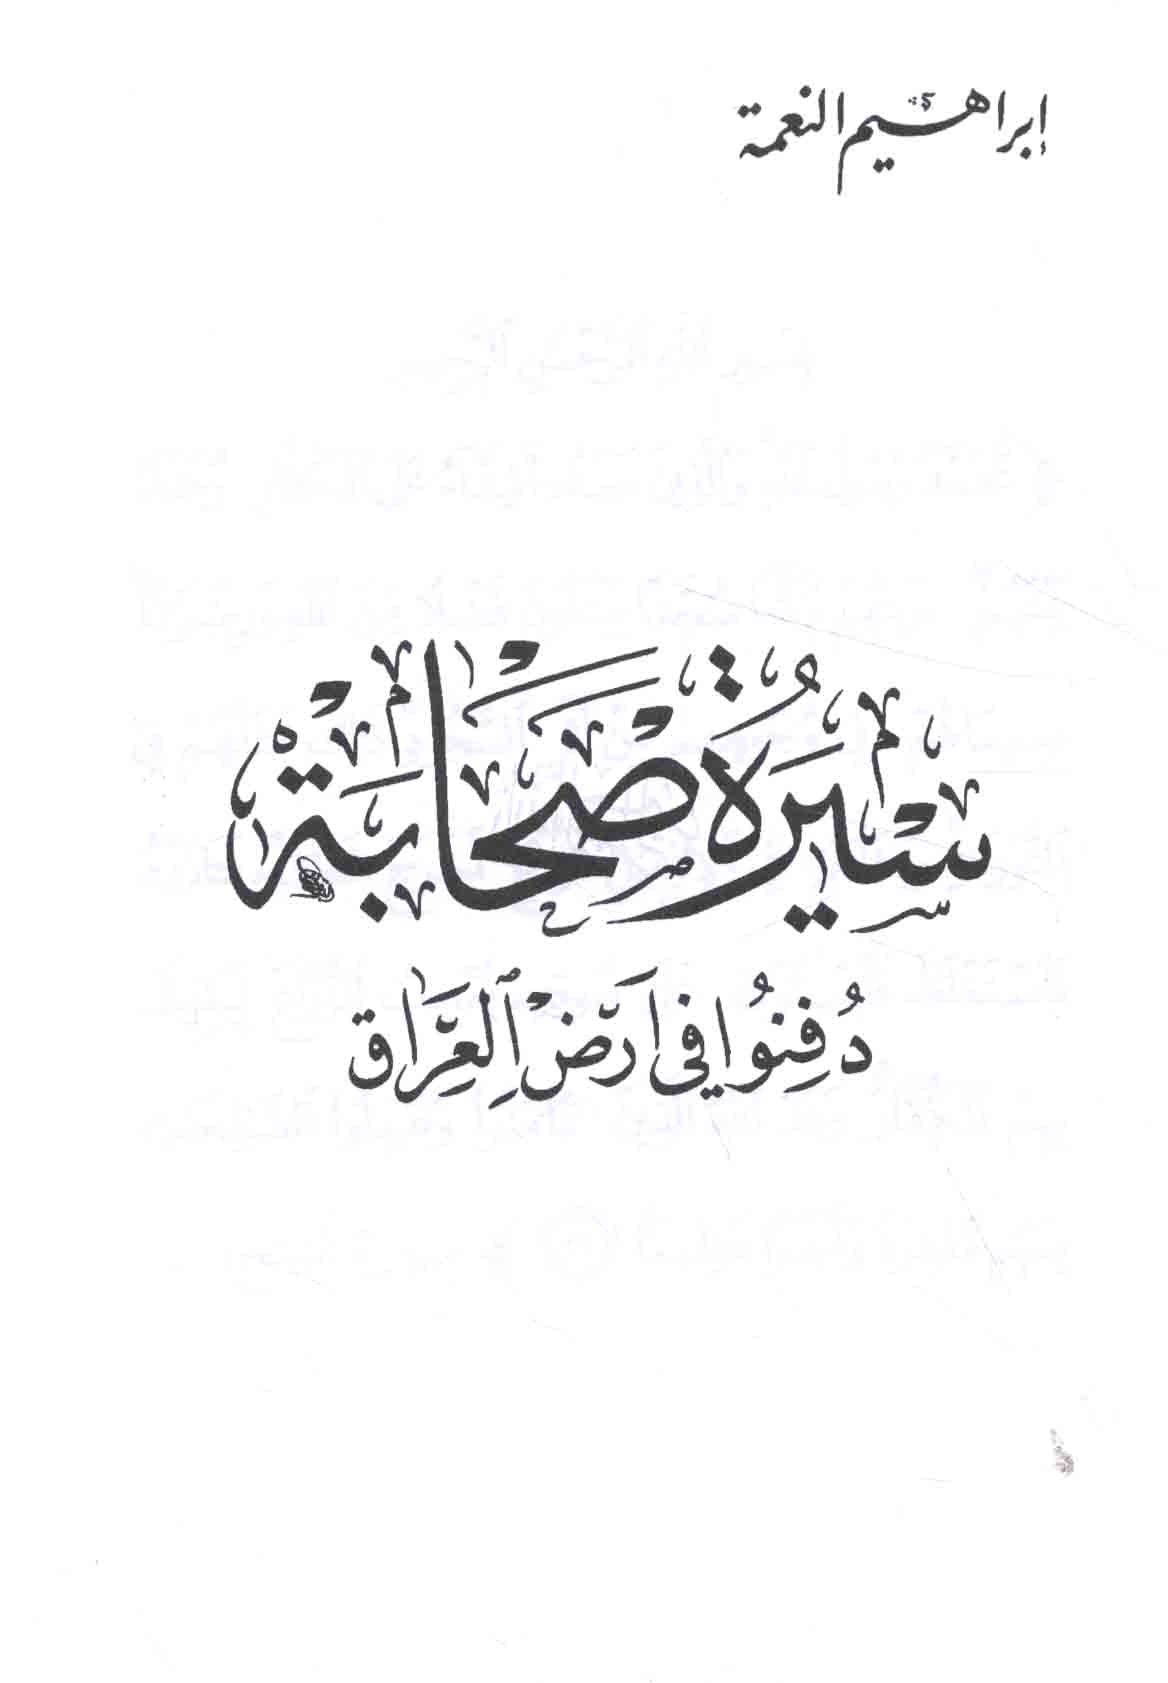 إبراهيم النعمة
سِيرَةُ صَحَابَةٍ
دُفِنُوا فِي أرَضْ ٱلْعِرَاق